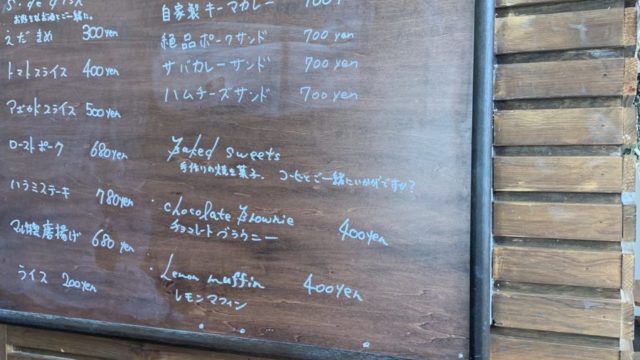 Side dish
お好きなお酒とご一緒に。
えだまめ 300yen
トマトスライス 400yen
アボカドスライス 500yen
ローストポーク 680yen
ハラミステーキ 780yen
唐揚げ 680yen
ライス 200yen
自家製キーマカレー 700yen
絶品ポークサンド 700yen
サバカレーサンド 700yen
ハムチーズサンド 700yen
Baked sweets
手作りの焼き菓子。コーヒーとご一緒にいかがですか?
・chocolate Brownie 400yen
チョコレートブラウニー
・Lemon muffin 400yen
レモンマフィン